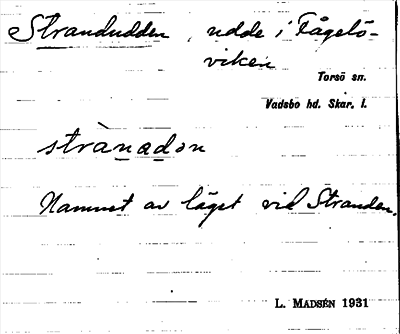 Strandudden, udde i Fågelö-
viken
Torsö sn.
Vadsbo hd. Skar. l.
strànądən
Namnet av läget vid Stranden.
L. MADSÉN 1931